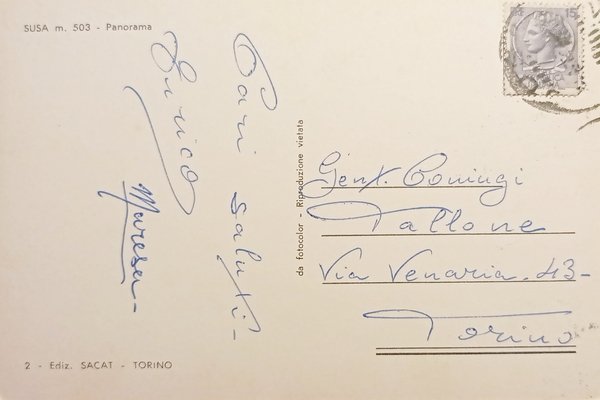 SUSA m. 503 - Panorama
Cari saluti-
Enrico
Maresa-
da fotocolor - Riproduzione vietata
15
Gent. Coniugi
Tallone
Via Venaria. 43-
Torino
2 - Ediz. SACAT - TORINO